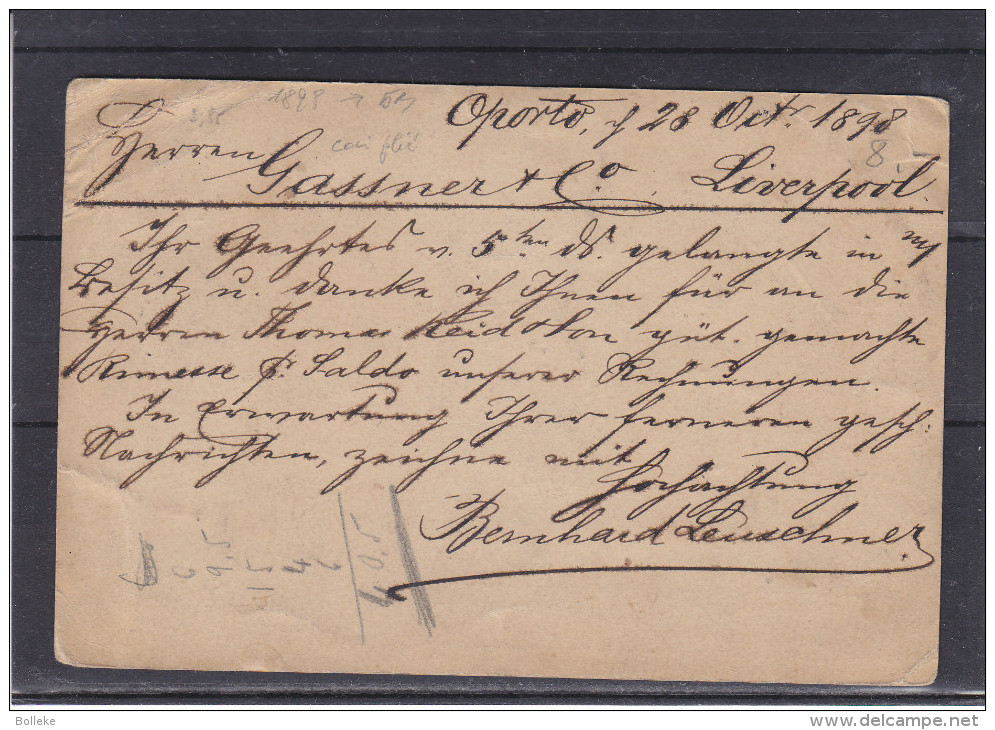 Oporto, d 28 Oct. 1898
Herren
Gassner & Co, Liverpool.
Ihr Geehrtes v. 5ten ds. gelangte in
Besitz u. danke ich Ihnen für an die
Herren Thomas Reid & Son güt. gemachte
Rimesse pr Saldo unserer Rechnungen.
In Erwartung Ihrer ferneren gesch:
Nachrichten, zeichne mit
Hochachtung
Bernhard Leuschner
1898
8
Bolleke
www.delcampe.net